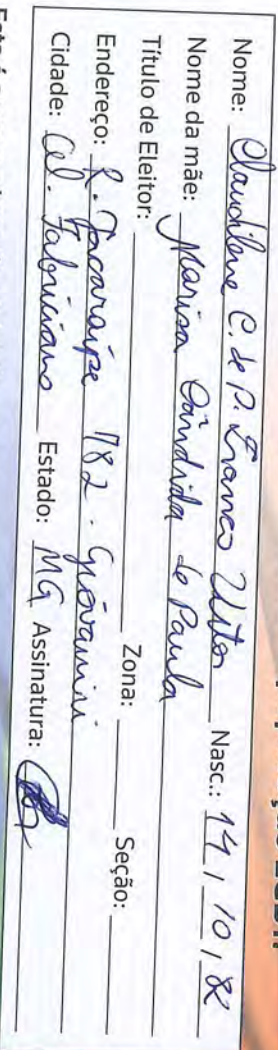 Nome: Claudilene C. de P. Franco Vitor Nasc.: 14 / 10 / 82
Nome da mãe: Marisa Cândida de Paula
Título de Eleitor: Zona: Seção:
Endereço: R. Jacaraípe 782 - Giovannini
Cidade: Cel. Fabriciano Estado: MG Assinatura: